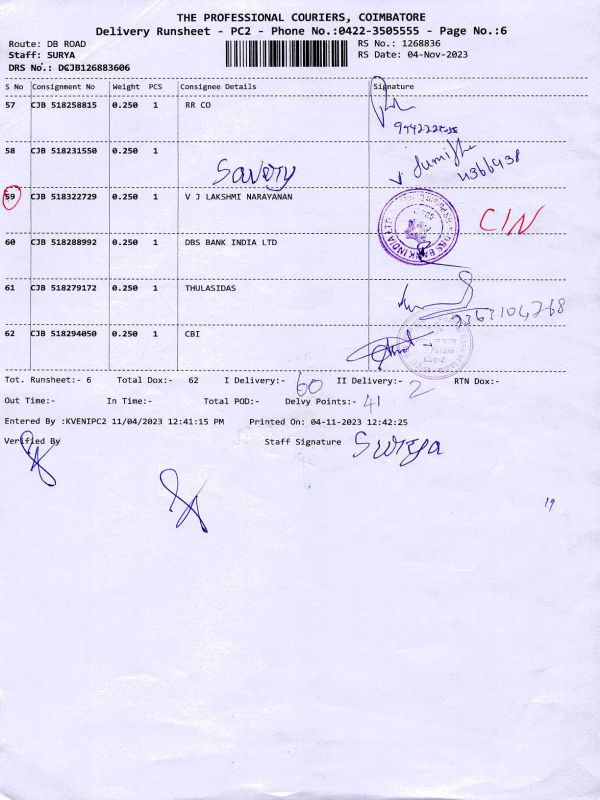 THE PROFESSIONAL COURIERS, COIMBATORE
Delivery Runsheet - PC2 - Phone No.:0422-3505555 - Page No.:6
Route: DB ROAD RS No.: 1268836
Staff: SURYA RS Date: 04-Nov-2023
DRS No.: DCJB126883606
S No Consignment No Weight PCS Consignee Details Signature
57 CJB 518258815 0.250 1 RR CO
58 CJB 518231550 0.250 1
Savery
59 CJB 518322729 0.250 1 V J LAKSHMI NARAYANAN
CIN
60 CJB 518288992 0.250 1 DBS BANK INDIA LTD
61 CJB 518279172 0.250 1 THULASIDAS
62 CJB 518294050 0.250 1 CBI
Tot. Runsheet:- 6 Total Dox:- 62 I Delivery:- 60 II Delivery:- 2 RTN Dox:-
Out Time:- In Time:- Total POD:- Delvy Points:- 41
Entered By :KVENIPC2 11/04/2023 12:41:15 PM Printed On: 04-11-2023 12:42:25
Verified By Staff Signature Surya
19